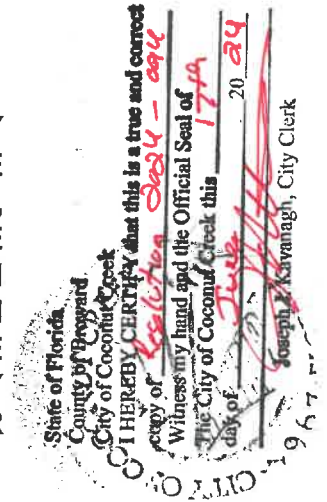 State of Florida
County of Broward
City of Coconut Creek
I HEREBY CERTIFY that this is a true and correct
copy of Resolution 2024-094
Witness my hand and the Official Seal of
The City of Coconut Creek this 17th
day of June 20 24
Joseph J. Kavanagh, City Clerk
CITY OF CO
967